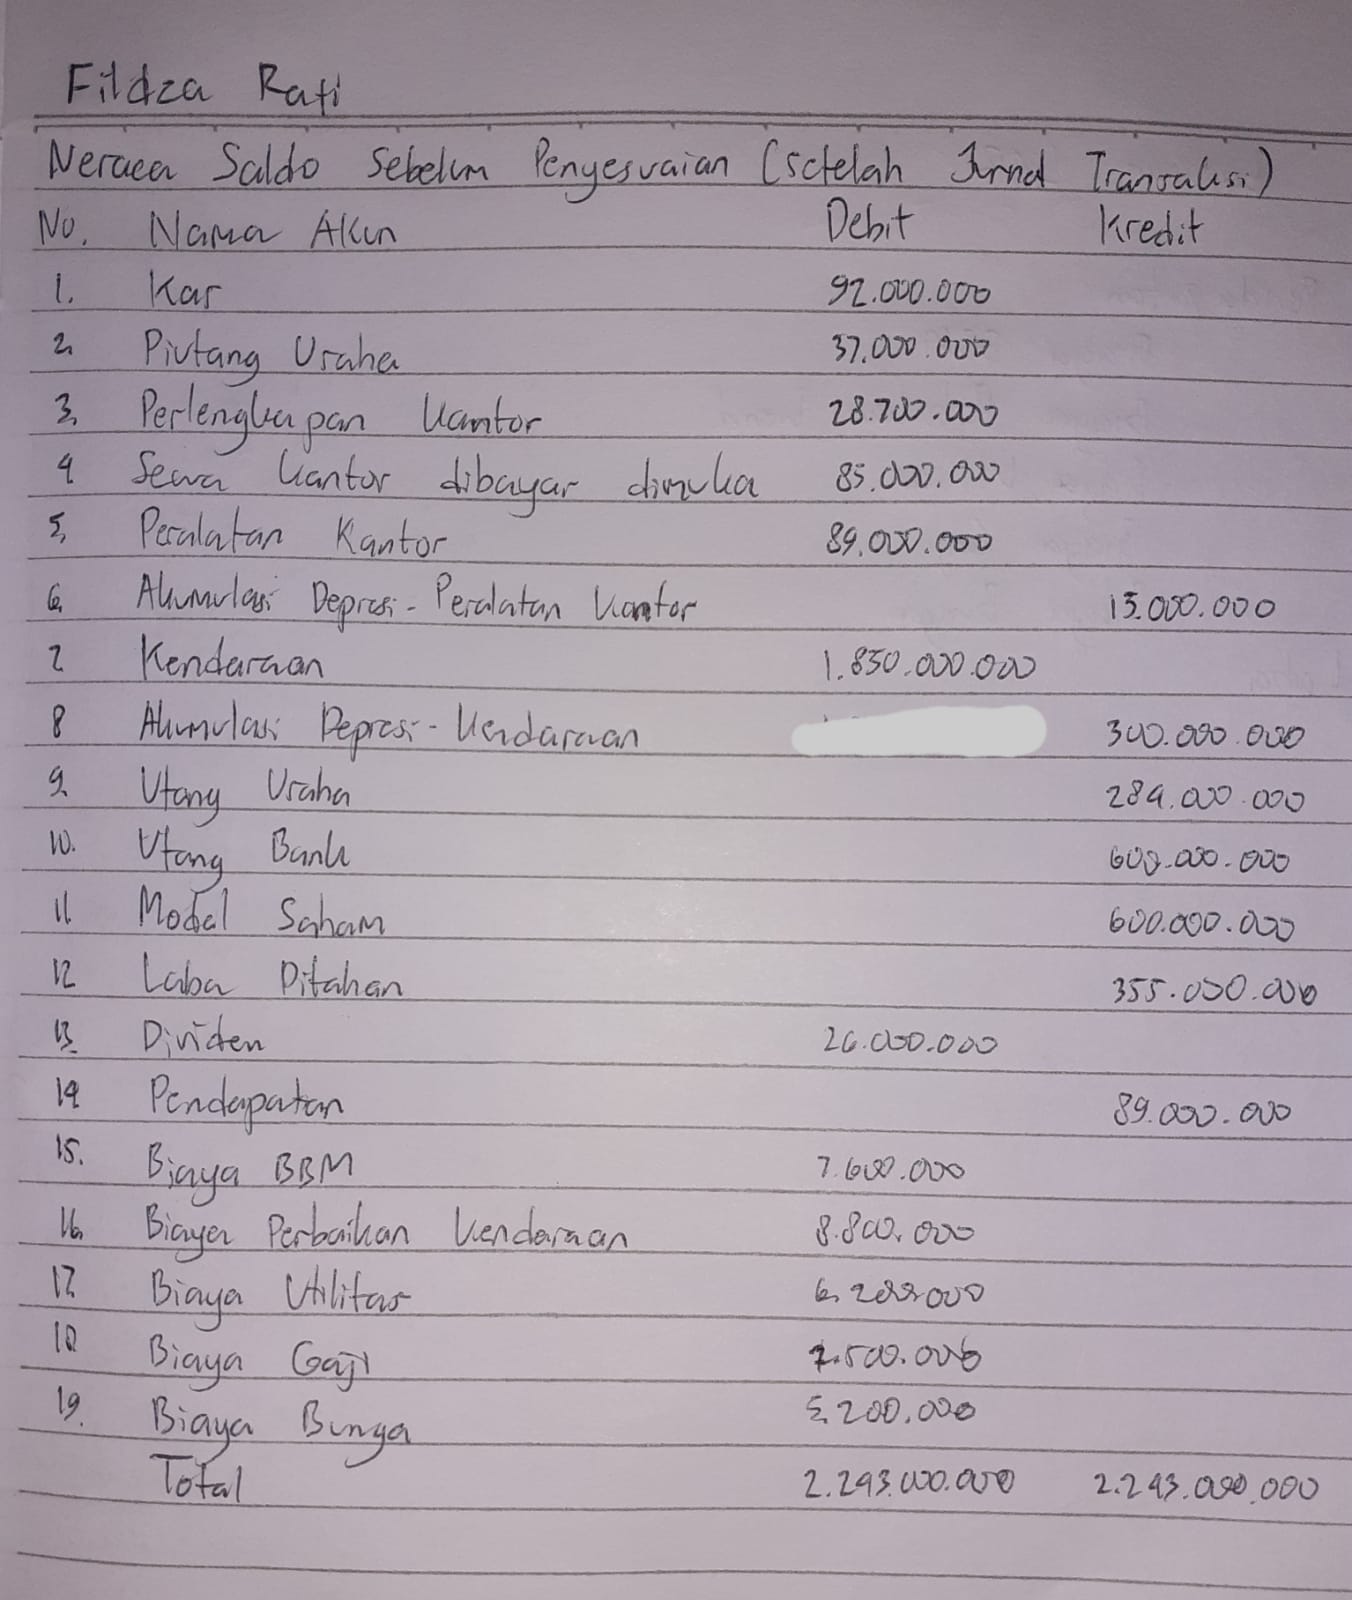 Fildza Rafi
Neraca Saldo Sebelum Penyesuaian (setelah Jurnal Transaksi)
No. Nama Akun Debit Kredit
1. Kas 92.000.000
2. Piutang Usaha 37.000.000
3. Perlengkapan Kantor 28.700.000
4 Sewa Kantor dibayar dimuka 85.000.000
5. Peralatan Kantor 89.000.000
6. Akumulasi Depresi - Peralatan Kantor 15.000.000
7 Kendaraan 1.850.000.000
8 Akumulasi Depresi - Kendaraan 300.000.000
9. Utang Usaha 284.000.000
10. Utang Bank 600.000.000
11 Modal Saham 600.000.000
12 Laba Ditahan 355.000.000
13. Dividen 26.000.000
14 Pendapatan 89.000.000
15. Biaya BBM 7.600.000
16. Biaya Perbaikan Kendaraan 8.800.000
17 Biaya Utilitas 6.200.000
18 Biaya Gaji 7.500.000
19. Biaya Bunga 5.200.000
Total 2.243.000.000 2.243.000.000